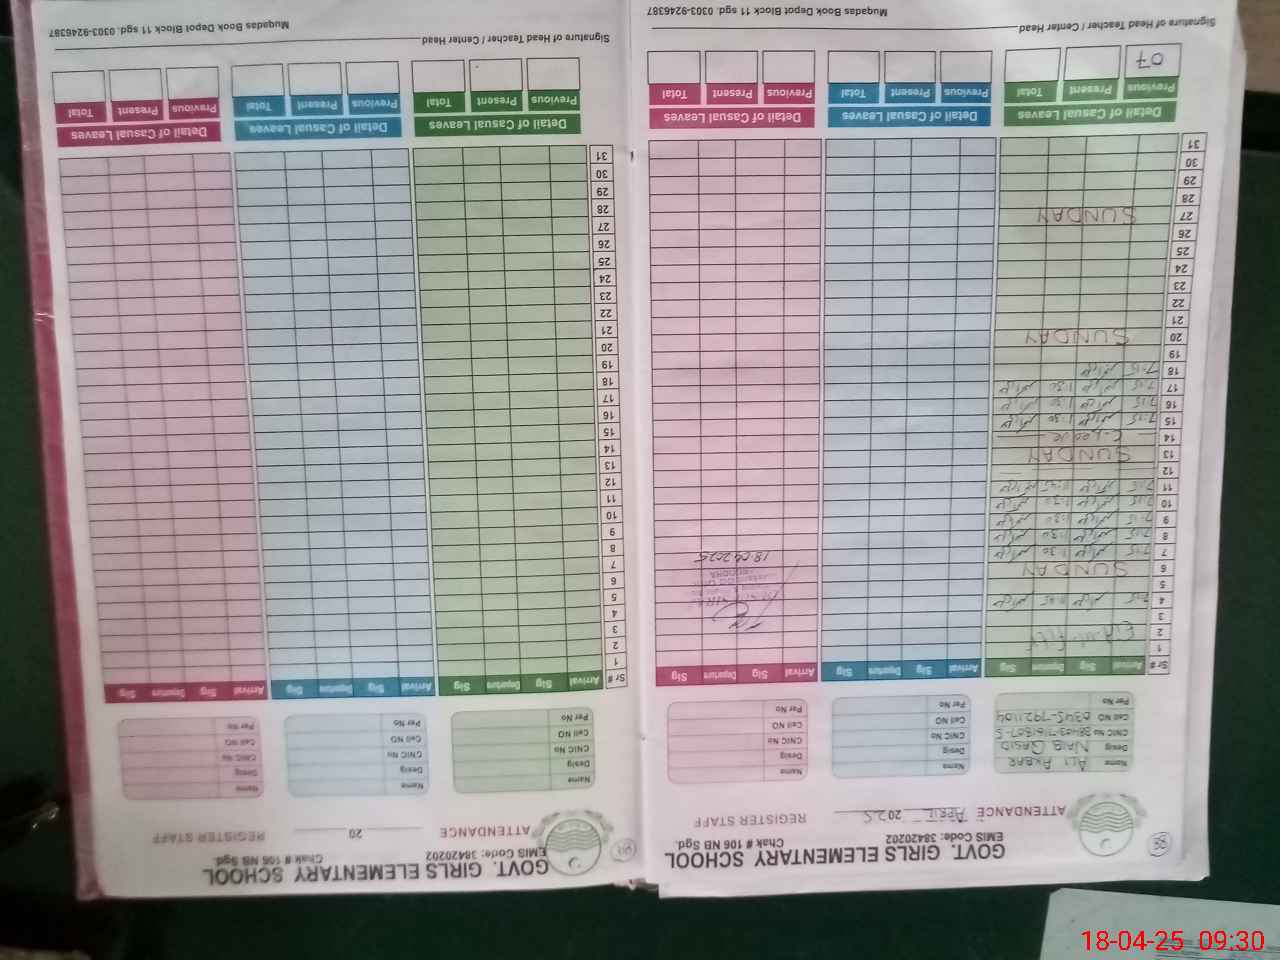 88
GOVT. GIRLS ELEMENTARY SCHOOL
EMIS Code: 38420202 Chak # 106 NB Sgd.
ATTENDANCE APRIL 2025 REGISTER STAFF
Name ALI AKBAR
Desig NAIB QASID
CNIC No
Cell NO 0345-7921104
Per No
Name
Desig
CNIC No
Cell NO
Per No
Name
Desig
CNIC No
Cell NO
Per No
Sr # Arrival Sig Departure Sig Arrival Sig Departure Sig Arrival Sig Departure Sig
1
2
3
4 7:15
5
6 SUNDAY
7 7:15 1:30
8 7:15 1:30
9 7:15 1:30
10 7:15 1:30
11 7:15
12
13 SUNDAY
14
15 7:15 1:30
16 7:15 1:30
17 7:15 1:30
18 7:15
19
20 SUNDAY
21
22
23
24
25
26
27 SUNDAY
28
29
30
31
18.04.2025
Detail of Casual Leaves Detail of Casual Leaves Detail of Casual Leaves
Previous Present Total Previous Present Total Previous Present Total
07
Signature of Head Teacher / Center Head
Muqadas Book Depot Block 11 sgd. 0303-9246387
GOVT. GIRLS ELEMENTARY SCHOOL
EMIS Code: 38420202 Chak # 106 NB Sgd.
ATTENDANCE 20 REGISTER STAFF
Name
Desig
CNIC No
Cell NO
Per No
Name
Desig
CNIC No
Cell NO
Per No
Name
Desig
CNIC No
Cell NO
Per No
Sr # Arrival Sig Departure Sig Arrival Sig Departure Sig Arrival Sig Departure Sig
1
2
3
4
5
6
7
8
9
10
11
12
13
14
15
16
17
18
19
20
21
22
23
24
25
26
27
28
29
30
31
Detail of Casual Leaves Detail of Casual Leaves Detail of Casual Leaves
Previous Present Total Previous Present Total Previous Present Total
Signature of Head Teacher / Center Head
Muqadas Book Depot Block 11 sgd. 0303-9246387
18-04-25 09:30